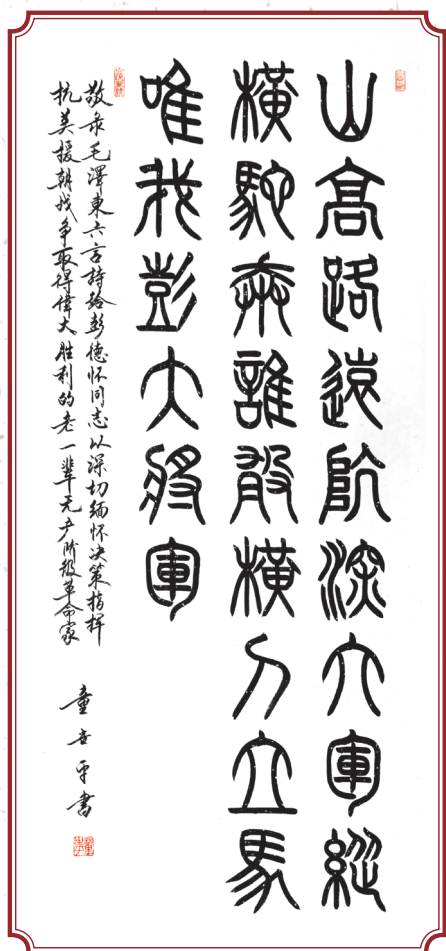 山高路遠阬深大軍縱
橫馳奔誰敢橫刀立馬
唯我彭大將軍
敬录毛澤東六言詩给彭德怀同志以深切缅怀决策指挥
抗美援朝战争取得偉大胜利的老一辈无产阶级革命家
童世平書